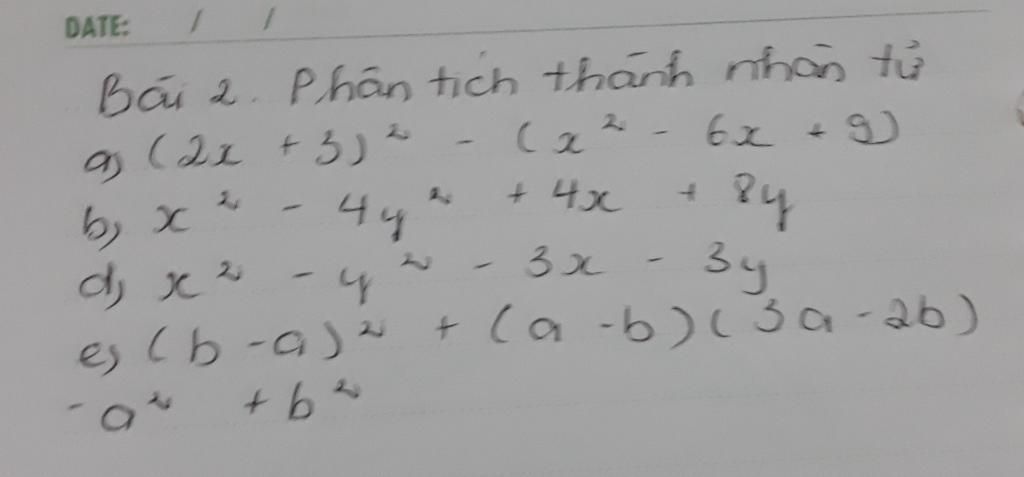 DATE: / /
Bài 2. Phân tích thành nhân tử
a) (2x + 3)² - (x² - 6x + 9)
b) x² - 4y² + 4x + 8y
d) x² - y² - 3x - 3y
e) (b - a)² + (a - b)(3a - 2b)
- a² + b²